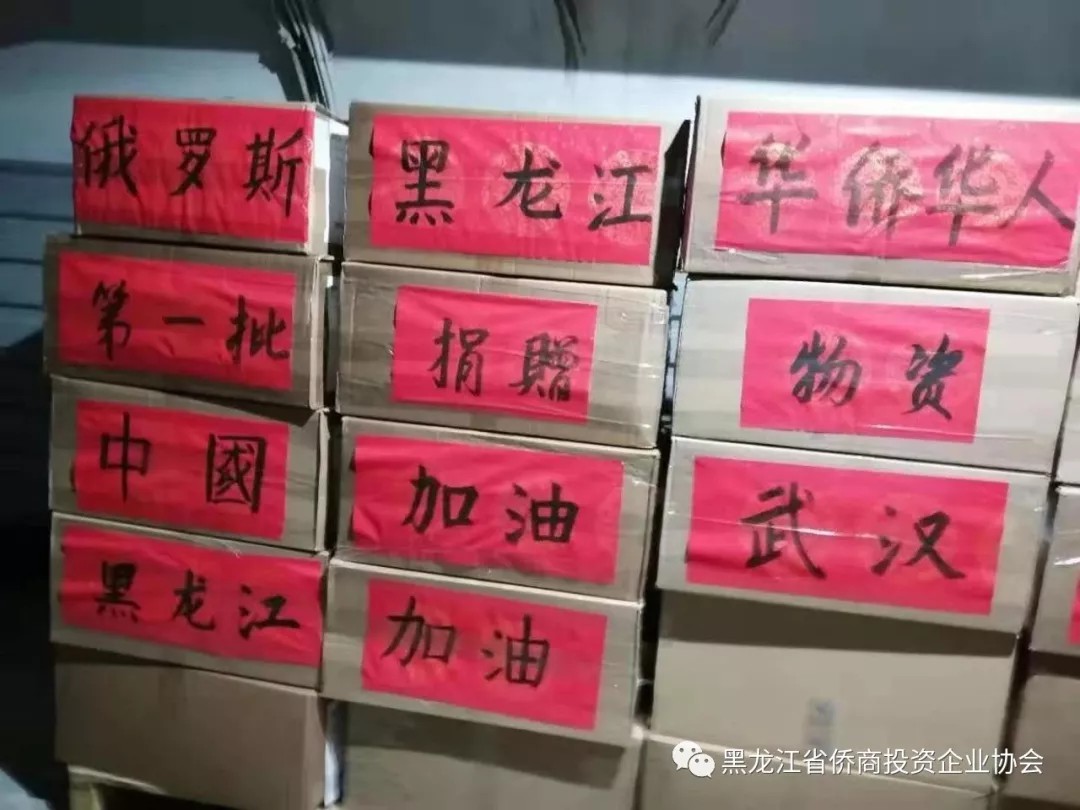 俄罗斯 黑龙江 华侨华人
第一批 捐赠 物资
中國 加油 武汉
黑龙江 加油
黑龙江省侨商投资企业协会